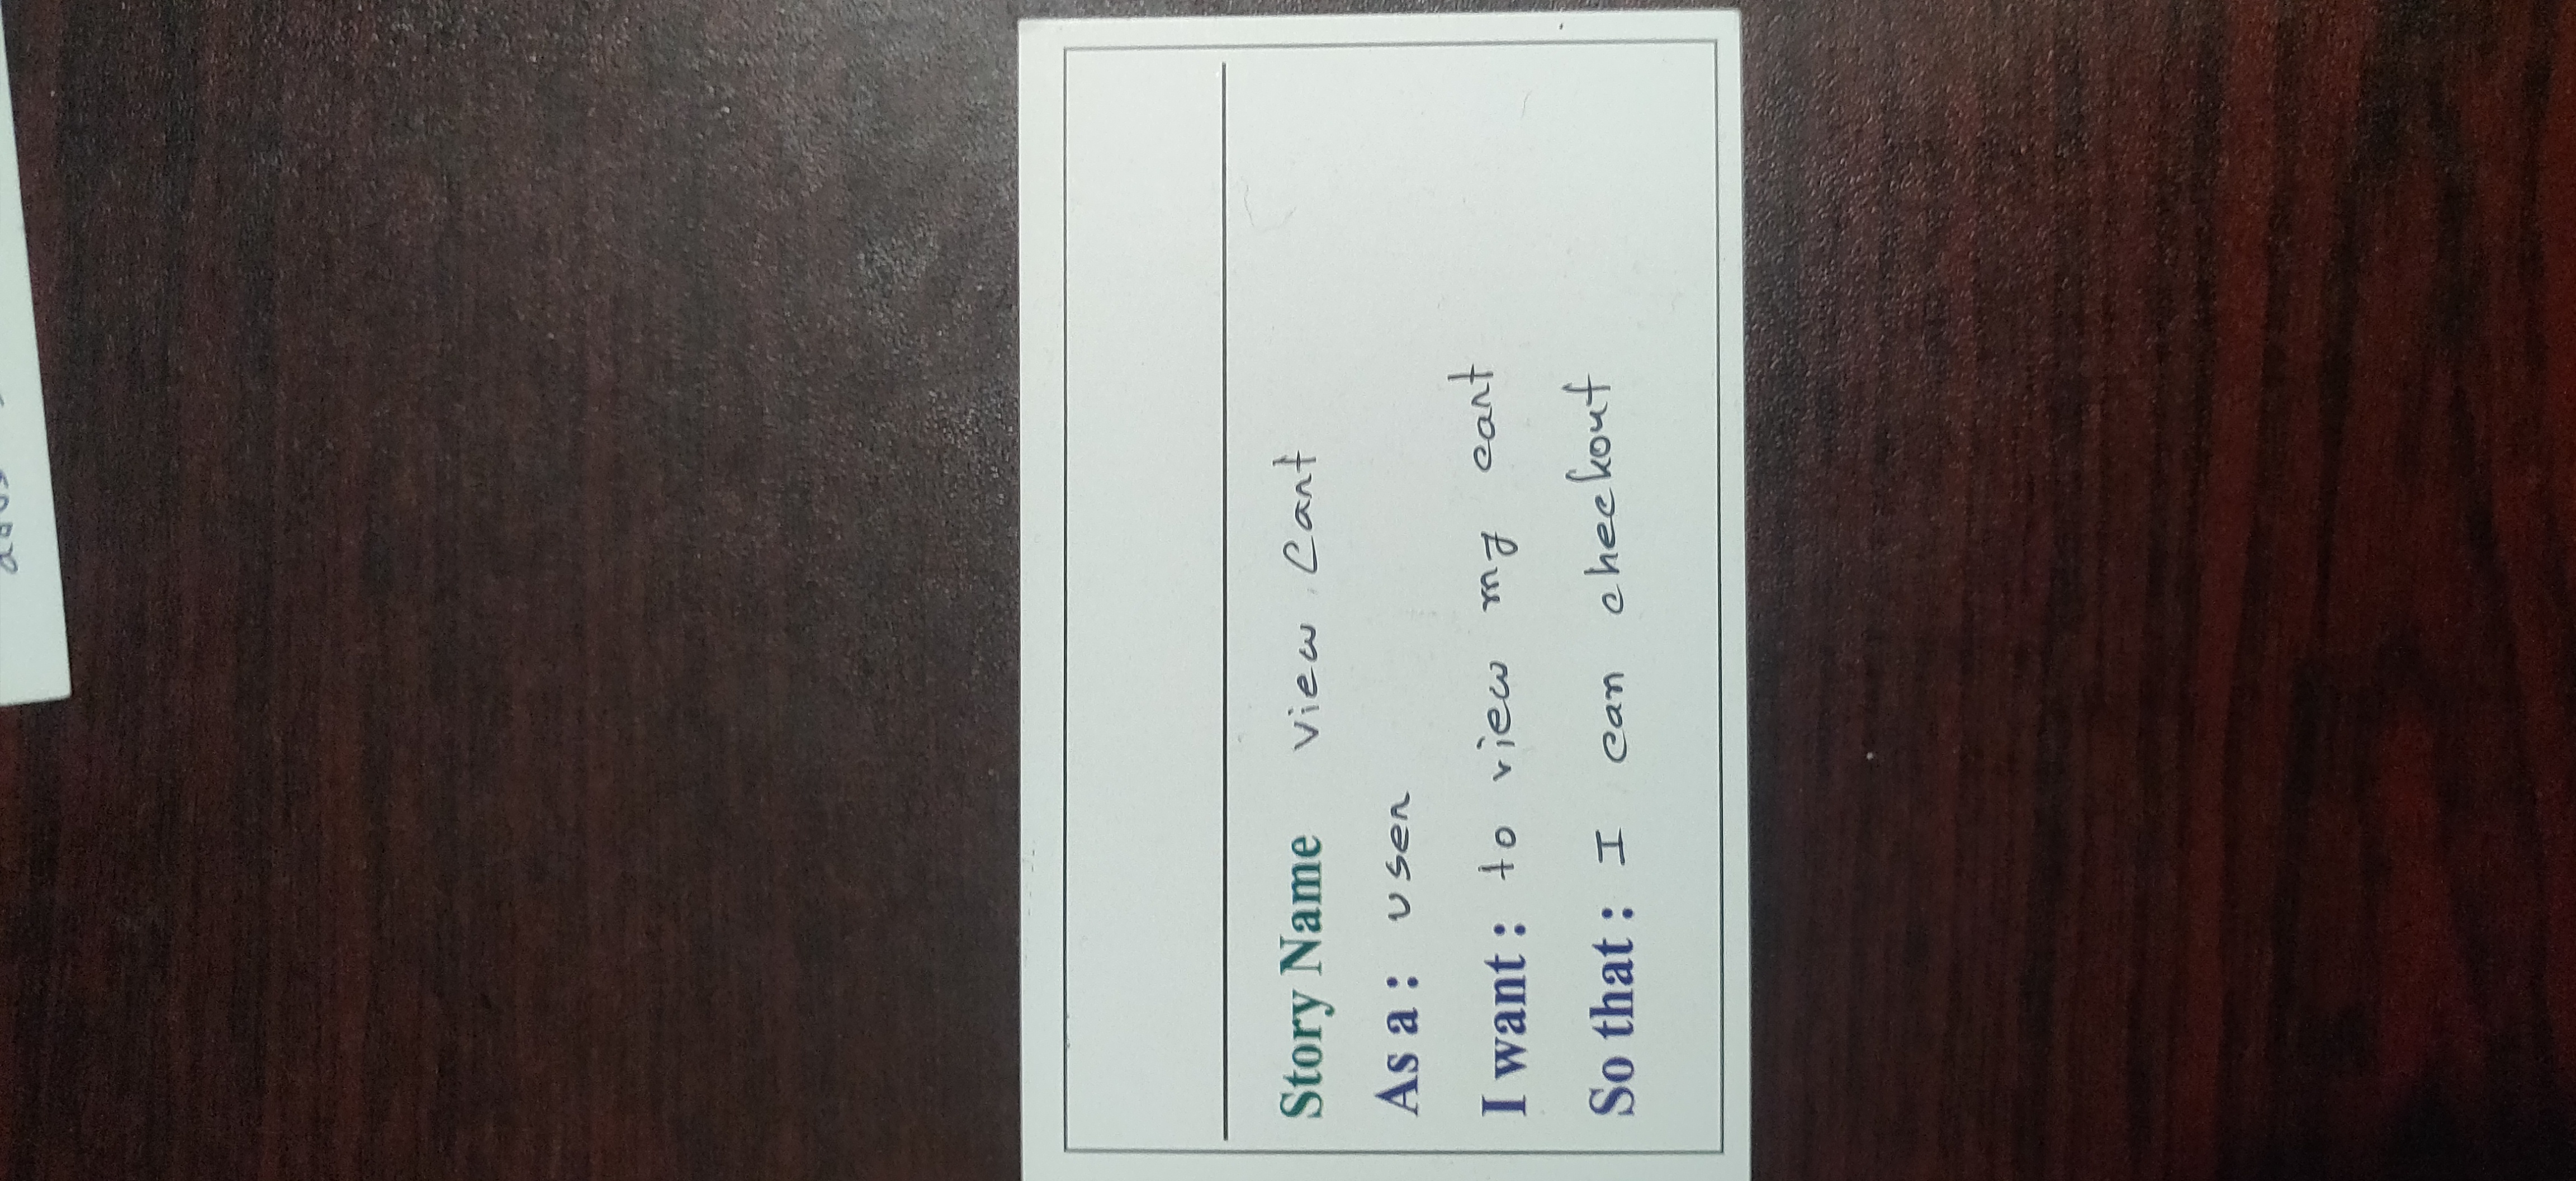 Story Name view Cart
As a : user
I want : to view my cart
So that : I can checkout